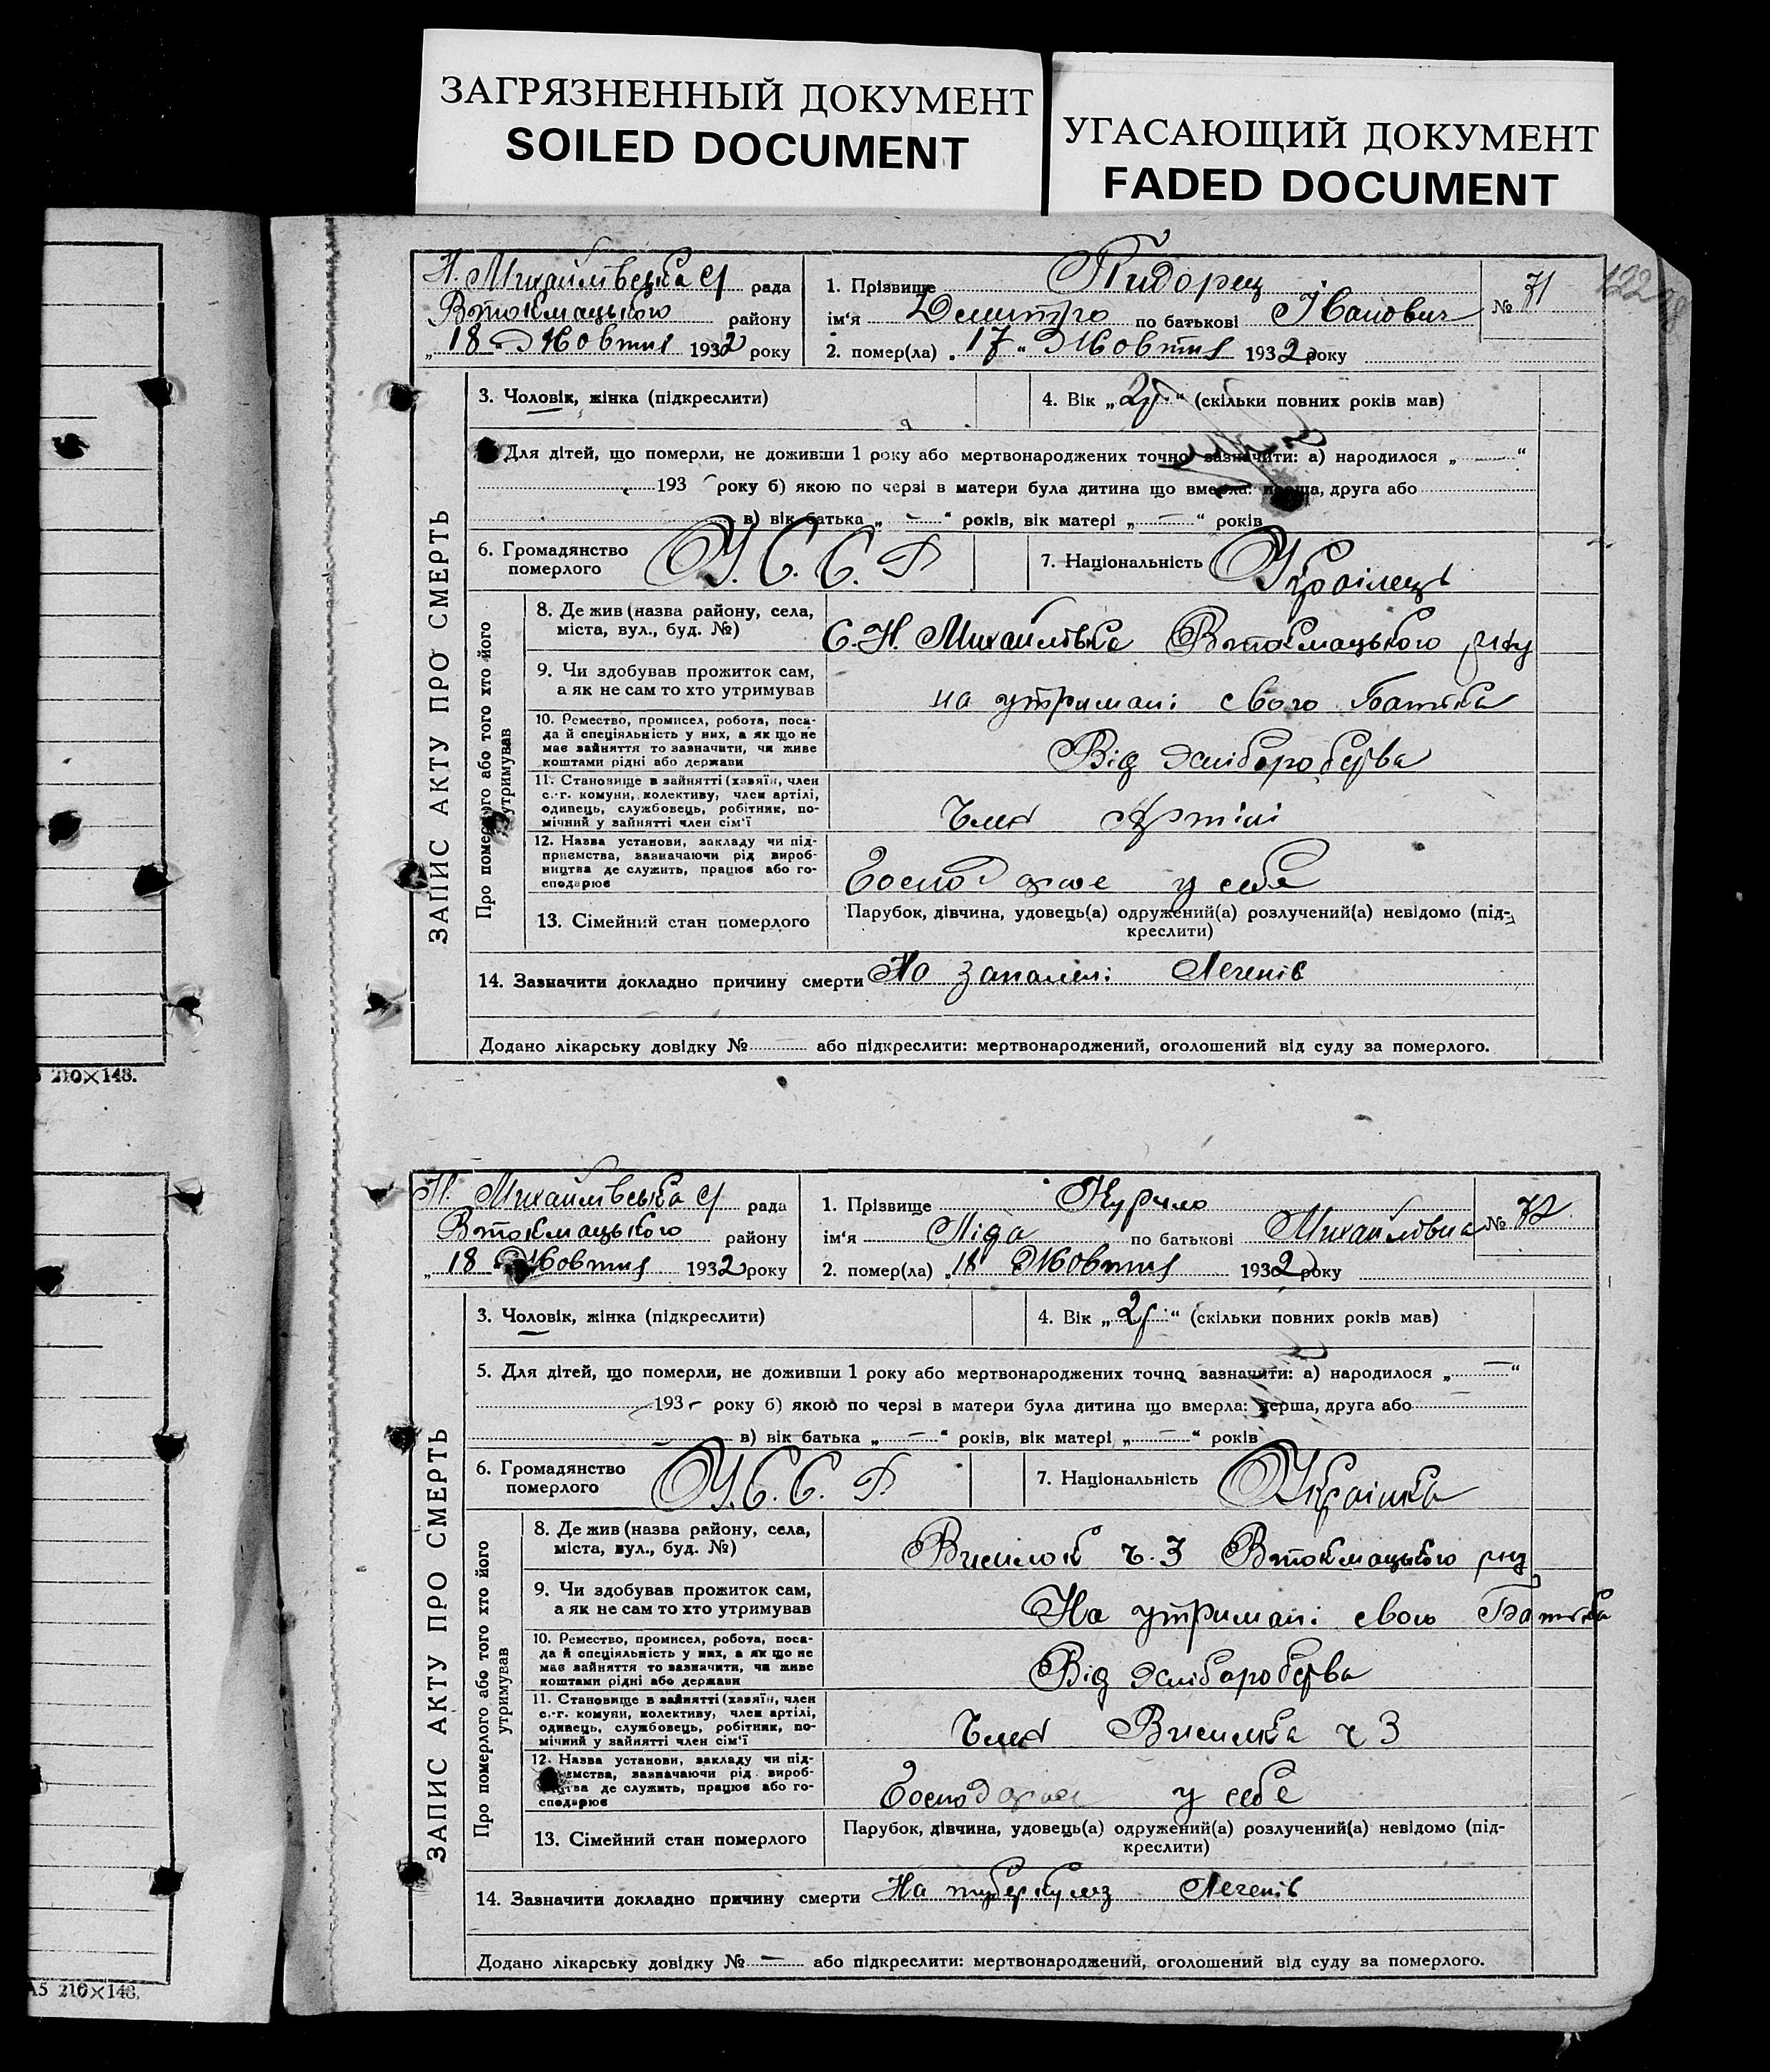 ЗАГРЯЗНЕННЫЙ ДОКУМЕНТ
SOILED DOCUMENT
УГАСАЮЩИЙ ДОКУМЕНТ
FADED DOCUMENT
Н. Михайлівська с/ рада
Втокмацького району
„18" Жовтня 1932 року
1. Прізвище Тидорец
ім'я Демитро по батькові Іванович
2. помер(ла) „17" Жовтня 1932 року
№ 71
3. Чоловік, жінка (підкреслити)
4. Вік „2р" (скільки повних років мав)
Для дітей, що померли, не доживши 1 року або мертвонароджених точно зазначити: а) народилося „—"
193 року б) якою по черзі в матери була дитина що вмерла: перша, друга або
в) вік батька „—" років, вік матері „—" років
6. Громадянство померлого У.С.С.Р
7. Національність Українець
ЗАПИС АКТУ ПРО СМЕРТЬ
Про померлого або того хто його утримував
8. Де жив (назва району, села,
міста, вул., буд. №)
С. Н. Михайлівка Втокмацького р-ну
9. Чи здобував прожиток сам,
а як не сам то хто утримував
на утримані свого Батька
10. Ремество, промисел, робота, поса-
да й спеціяльність у них, а як що не
має зайняття то зазначити, чи живе
коштами рідні або держави
Від хліборобства
11. Становище в зайнятті (хазяїн, член
с.-г. комуни, колективу, член артілі,
одинець, службовець, робітник, по-
мічний у зайнятті член сім'ї
Член Артілі
12. Назва установи, закладу чи під-
приємства, зазначаючи рід вироб-
ництва де служить, працює або го-
сподарює
Господарює у себе
13. Сімейний стан померлого
Парубок, дівчина, удовець(а) одружений(а) розлучений(а) невідомо (під-
креслити)
14. Зазначити докладно причину смерти На запалені Легенів
Додано лікарську довідку № — або підкреслити: мертвонароджений, оголошений від суду за померлого.
210×148.
Н. Михайлівська с/ рада
Втокмацького району
„18" Жовтня 1932 року
1. Прізвище Курило
ім'я Ліда по батькові Михайлівна
2. помер(ла) „18 Жовтня 1932 року
№ 72
3. Чоловік, жінка (підкреслити)
4. Вік „2р" (скільки повних років мав)
5. Для дітей, що померли, не доживши 1 року або мертвонароджених точно зазначити: а) народилося „—"
193 року б) якою по черзі в матери була дитина що вмерла: перша, друга або
в) вік батька „—" років, вік матері „—" років
6. Громадянство померлого У.С.С.Р.
7. Національність Українка
ЗАПИС АКТУ ПРО СМЕРТЬ
Про померлого або того хто його утримував
8. Де жив (назва району, села,
міста, вул., буд. №)
Виселок ч. 3 Втокмацького р-ну
9. Чи здобував прожиток сам,
а як не сам то хто утримував
На утримані свого Батька
10. Ремество, промисел, робота, поса-
да й спеціяльність у них, а як що не
має зайняття то зазначити, чи живе
коштами рідні або держави
Від хліборобства
11. Становище в зайнятті (хазяїн, член
с.-г. комуни, колективу, член артілі,
одинець, службовець, робітник, по-
мічний у зайнятті член сім'ї
Член Виселка ч 3
12. Назва установи, закладу чи під-
приємства, зазначаючи рід вироб-
ництва де служить, працює або го-
сподарює
Господарює у себе
13. Сімейний стан померлого
Парубок, дівчина, удовець(а) одружений(а) розлучений(а) невідомо (під-
креслити)
14. Зазначити докладно причину смерти На туберкульз Легенів
Додано лікарську довідку № — або підкреслити: мертвонароджений, оголошений від суду за померлого.
А5 210×148.